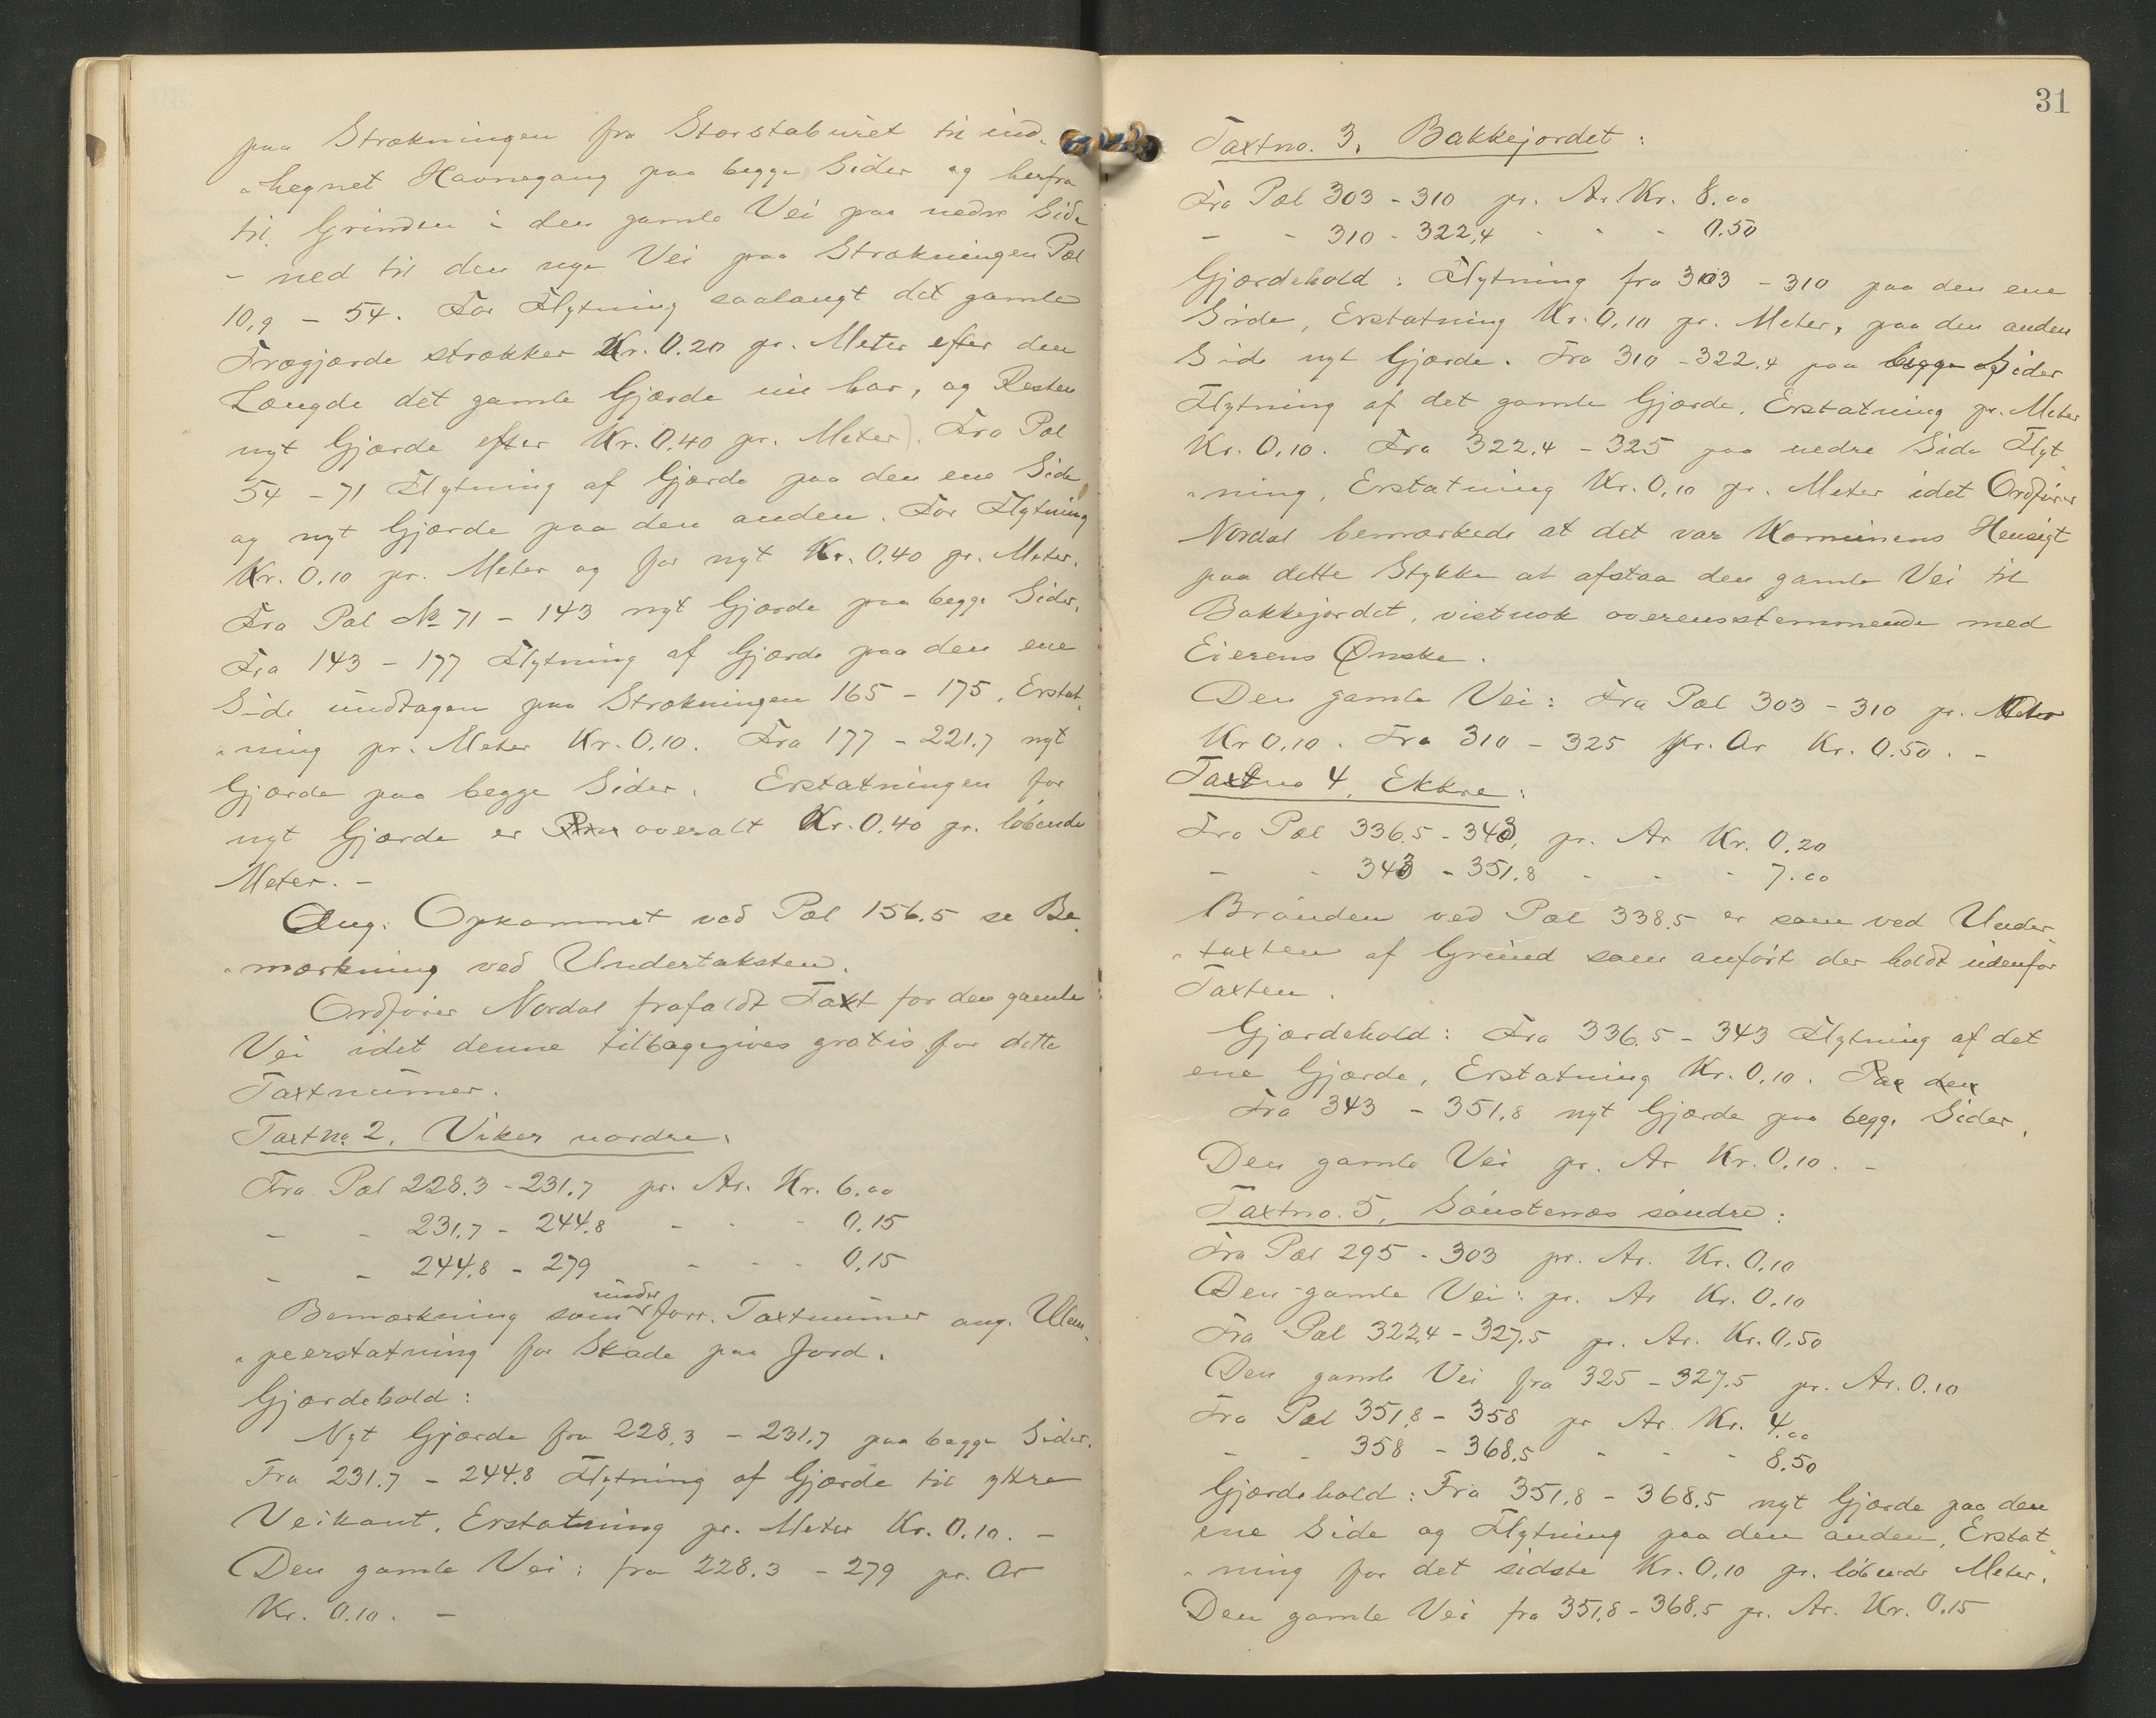 paa Strækningen fra Storstaburet til ind-
-hegnet Havnegang paa begge Sider og herfra
til Grinden i den gamle Vei paa nedre Side
- ned til den nye Vei paa Strækningen Pæl
10,9 - 54. For Flytning saalangt det gamle
Trægjærde strækker Kr. 0.20 pr. Meter efter den
Længde det gamle Gjærde nu har, og Resten
nyt Gjærde efter Kr. 0.40 pr. Meter). Fra Pæl
54 - 71 Flytning af Gjærde paa den ene Side
og nyt Gjærde paa den anden. For Flytning
Kr. 0.10 pr. Meter og for nyt Kr. 0.40 pr. Meter.
Fra Pæl № 71 - 143 nyt Gjærde paa begge Sider.
Fra 143 - 177 Flytning af Gjærde paa den ene
Side undtagen paa Strækningen 165 - 175, Erstat-
-ning pr. Meter Kr. 0.10. Fra 177 - 221.7 nyt
Gjærde paa begge Sider. Erstatningen for
nyt Gjærde er overalt Kr. 0.40 pr. løbende
Meter. -
Ang. Opkommet ved Pæl 156.5 se Be-
-mærkning ved Undertaksten.
Ordfører Nordal frafaldt Taxt for den gamle
Vei idet denne tilbagegives gratis for dette
Taxtnumer.
Taxtno. 2. Viker nordre.
Fra Pæl 228.3 - 231.7 pr. Ar. Kr. 6.00
- - 231.7 - 244.8 - - - 0.15
- - 244.8 - 279 - - - 0.15
Bemærkning som under forr. Taxtnumer ang. Ulem-
-peerstatning for Skade paa Jord.
Gjærdehold:
Nyt Gjærde fra 228.3 - 231.7 paa begge Sider.
Fra 231.7 - 244.8 Flytning af Gjærde til yttre
Veikant. Erstatning pr. Meter Kr. 0.10. -
Den gamle Vei: fra 228.3 - 279 pr. Ar
Kr. 0.10. -
31
Taxtno. 3. Bakkejordet:
Fra Pæl 303 - 310 pr. Ar. Kr. 8.00
- - 310 - 322,4 - - - 0.50
Gjærdehold: Flytning fra 303 - 310 paa den ene
Side, Erstatning Kr. 0,10 pr. Meter, paa den anden
Side nyt Gjærde. Fra 310 - 322.4 paa begge Sider
Flytning af det gamle Gjærde. Erstatning pr. Meter
Kr. 0,10. Fra 322.4 - 325 paa nedre Side Flyt-
-ning, Erstatning Kr. 0,10 pr. Meter idet Ordfører
Nordal bemærkede at det var Komunens Hensigt
paa dette Stykke at afstaa den gamle Vei til
Bakkejordet, vistnok overensstemmende med
Eierens Ønske.
Den gamle Vei: Fra Pæl 303 - 310 pr. Meter
Kr 0,10. Fra 310 - 325 pr. Ar Kr. 0.50. -
Taxtno 4. Ekkre:
Fra Pæl 336.5 - 343, pr. Ar Kr. 0.20
- - 343 - 351.8 - - - 7.00
Brønden ved Pæl 338.5 er som ved Under-
-taxten af Grund som anført der holdt udenfor
Taxten.
Gjærdehold: Fra 336.5 - 343 Flytning af det
ene Gjærde, Erstatning Kr. 0,10. Paa den
Fra 343 - 351.8 nyt Gjærde paa begge Sider.
Den gamle Vei pr. Ar Kr. 0.10. -
Taxtno. 5. Saustenæs søndre:
Fra Pæl 295 - 303 pr. Ar. Kr. 0.10
Den gamle Vei: pr. Ar Kr. 0.10
Fra Pæl 322,4 - 327.5 pr. Ar. Kr. 0.50
Den gamle Vei fra 325 - 327.5 pr. Ar. 0.10
Fra Pæl 351.8 - 358 pr Ar. Kr. 4.00
- - 358 - 368.5 - - - 8.50
Gjærdehold: Fra 351.8 - 368.5 nyt Gjærde paa den
ene Side og Flytning paa den anden, Erstat-
-ning for det sidste Kr. 0,10 pr. løbende Meter.
Den gamle Vei fra 351.8 - 368.5 pr. Ar. Kr. 0.15